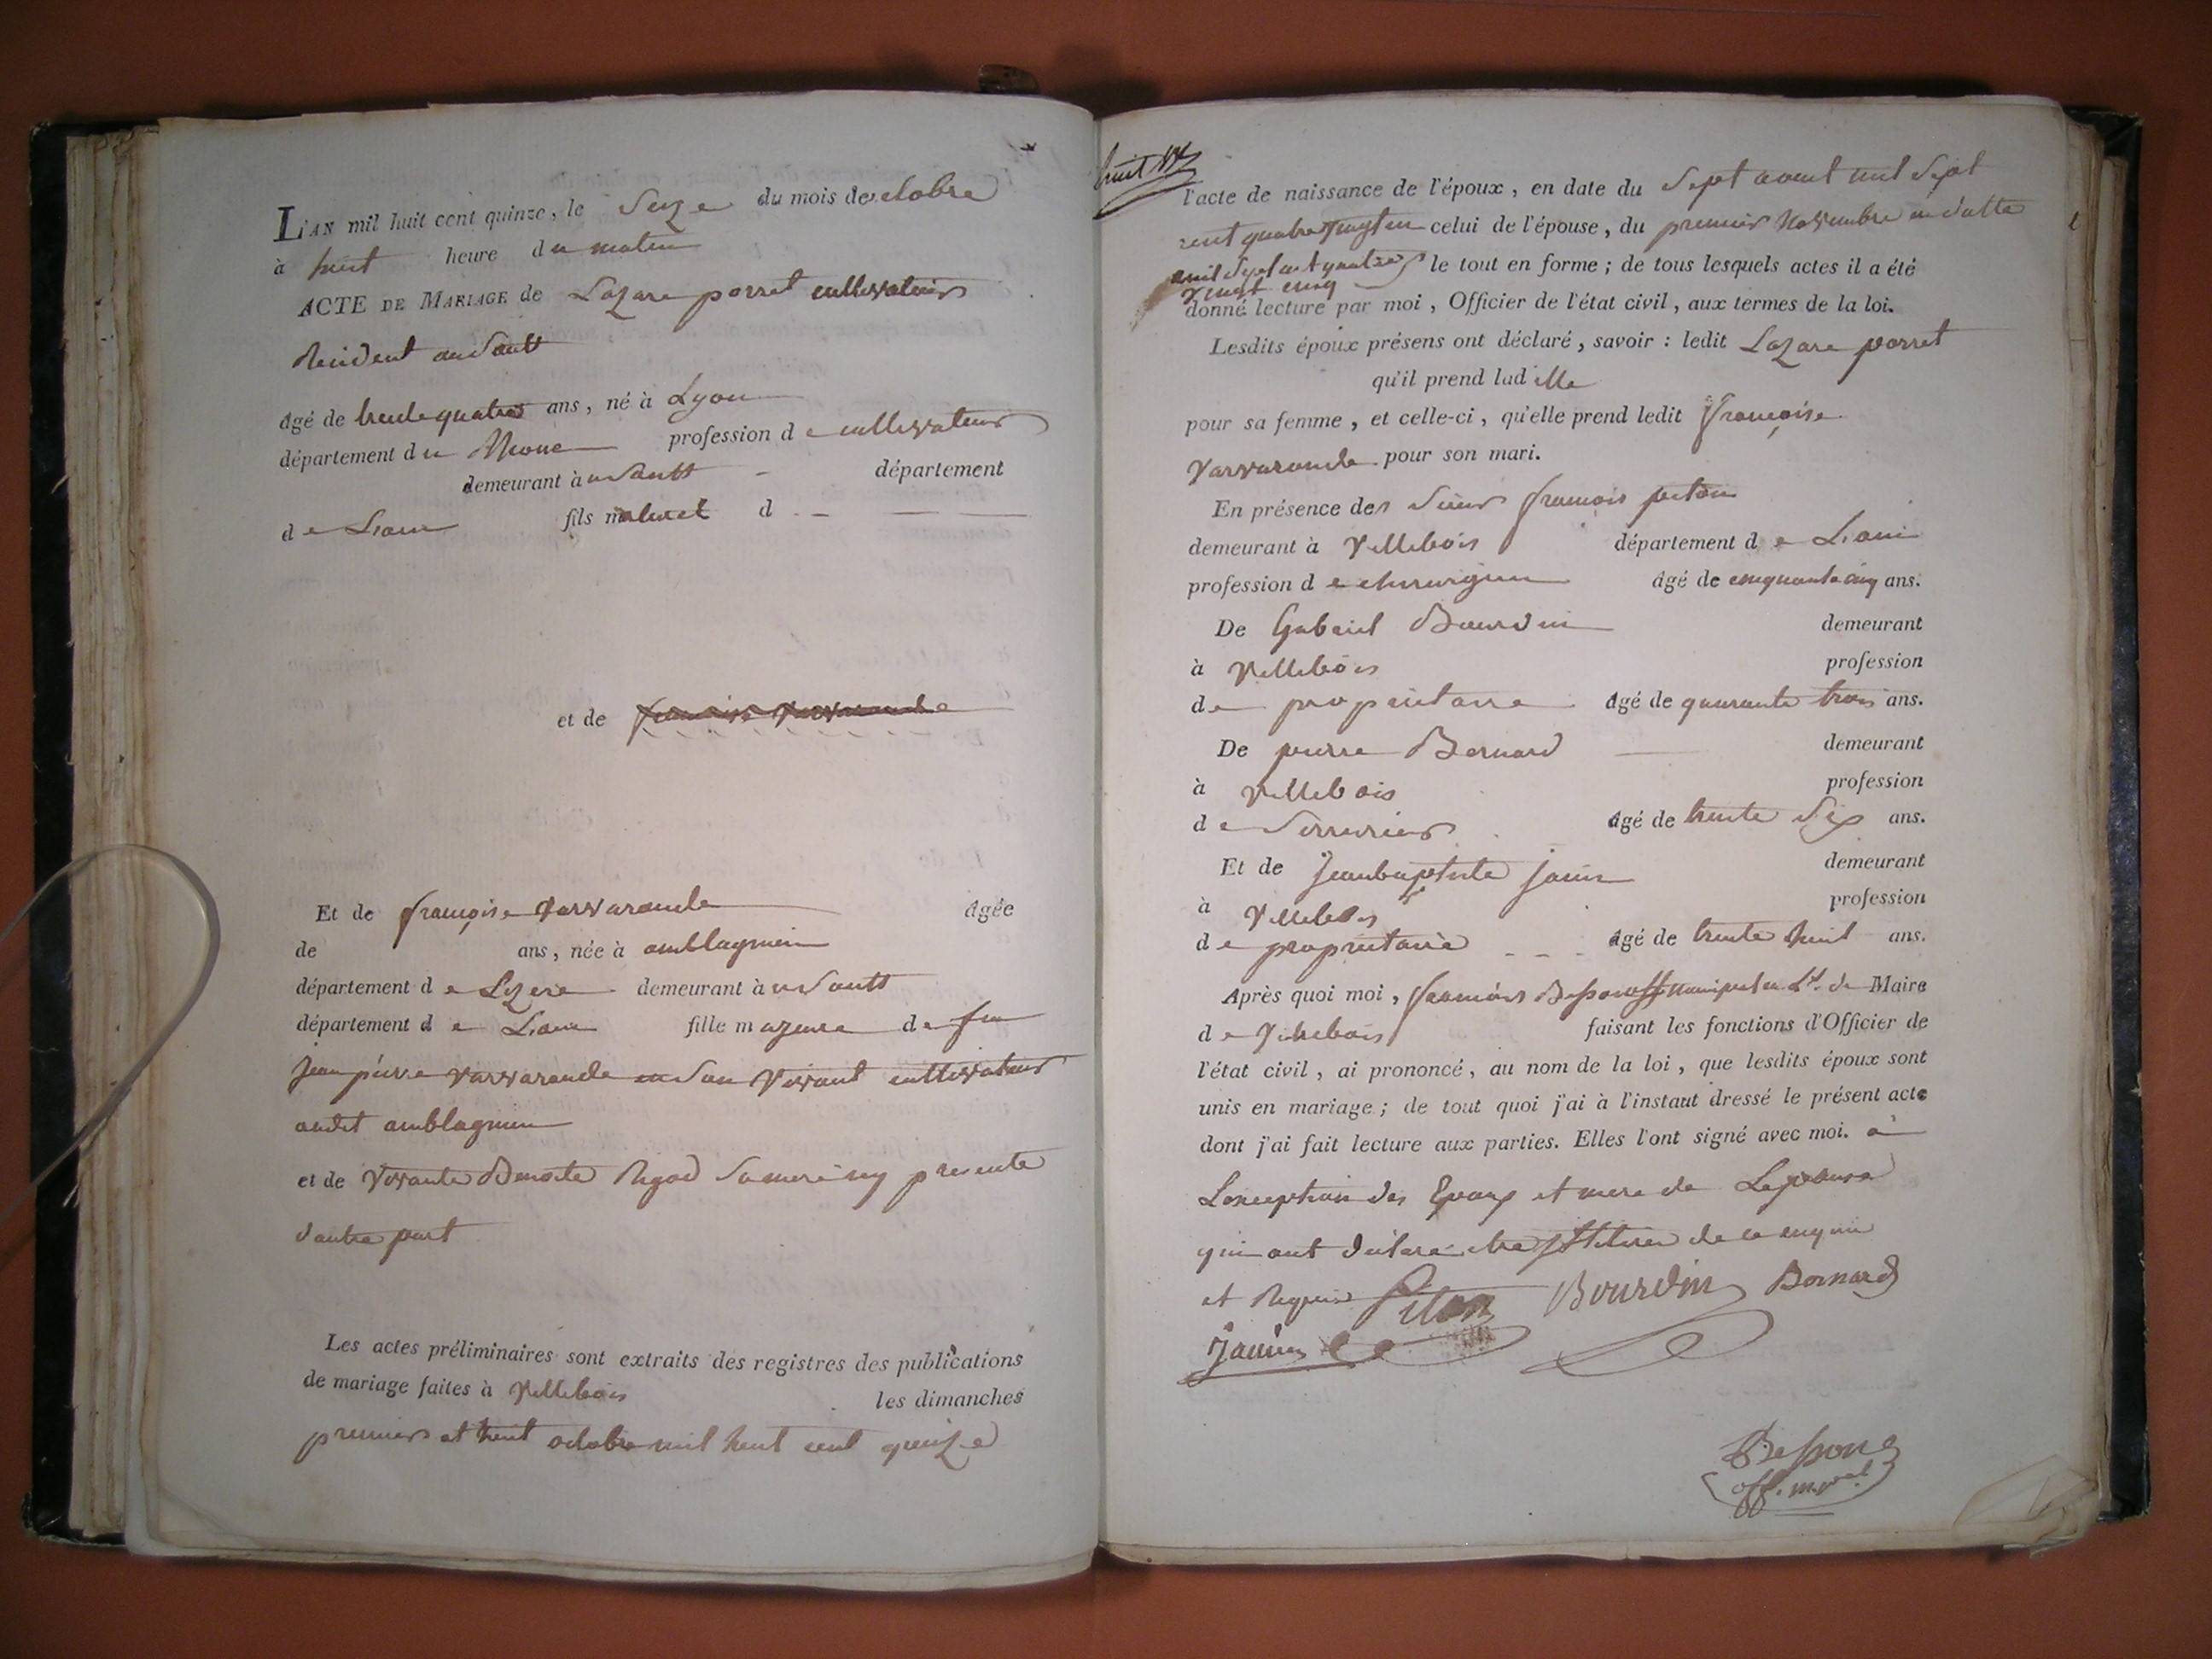 L'AN mil huit cent quinze, le Seize du mois doctobre
à huit heure du matin
ACTE DE MARIAGE de Lazare porret cultivateur
Resident au Sault
âgé de trente quatre ans, né à Lyon
département du Rhone profession de cultivateur
demeurant à département
de Lain fils naturel d
et de françoise Varvarande
Et de françoise Varvarande âgée
de ans, née à amblagnieu
département de Lizere demeurant à
département de Lain fille majeure de feu
Jean pierre Varvarande en Son Vivant cultivateur
audit amblagnieu
et de Vivante Benoite Rigod Sa mere icy presente
d'autre part
Les actes préliminaires sont extraits des registres des publications
de mariage faites à Villebois les dimanches
premier et huit octobre mil huit cent quinze
huit
l'acte de naissance de l'époux, en date du Sept aout mil Sept
cent quatre vingt un celui de l'épouse, du premier Novembre
mil Sept cent quatre le tout en forme ; de tous lesquels actes il a été
vingt cinq
donné lecture par moi, Officier de l'état civil, aux termes de la loi.
Lesdits époux présens ont déclaré, savoir : ledit Lazare porret
qu'il prend lad'itte
pour sa femme, et celle-ci, qu'elle prend ledit françoise
Varvarande pour son mari.
En présence des Sieur francois piton
demeurant à Villebois département de Lain
profession de chirurgien âgé de cinquante cinq ans.
De Gabriel Bourdin demeurant
à Villebois profession
de propriétaire âgé de quarante trois ans.
De pierre Bernard demeurant
à Villebois profession
de Serrurier âgé de trente Six ans.
Et de Jeanbaptiste Janin demeurant
à Villebois profession
de propriétaire âgé de trente huit ans.
Après quoi moi, francois Besson off. municipal de Maire
de Villebois faisant les fonctions d'Officier de
l'état civil, ai prononcé, au nom de la loi, que lesdits époux sont
unis en mariage ; de tout quoi j'ai à l'instant dressé le présent acte
dont j'ai fait lecture aux parties. Elles l'ont signé avec moi. a
Lexception des Epoux et mere de Lepouse
qui ont déclaré etre illiterés de ce enquis
et Requis Piton Bourdin Bernard
Janin
Besson
off. m.pal.